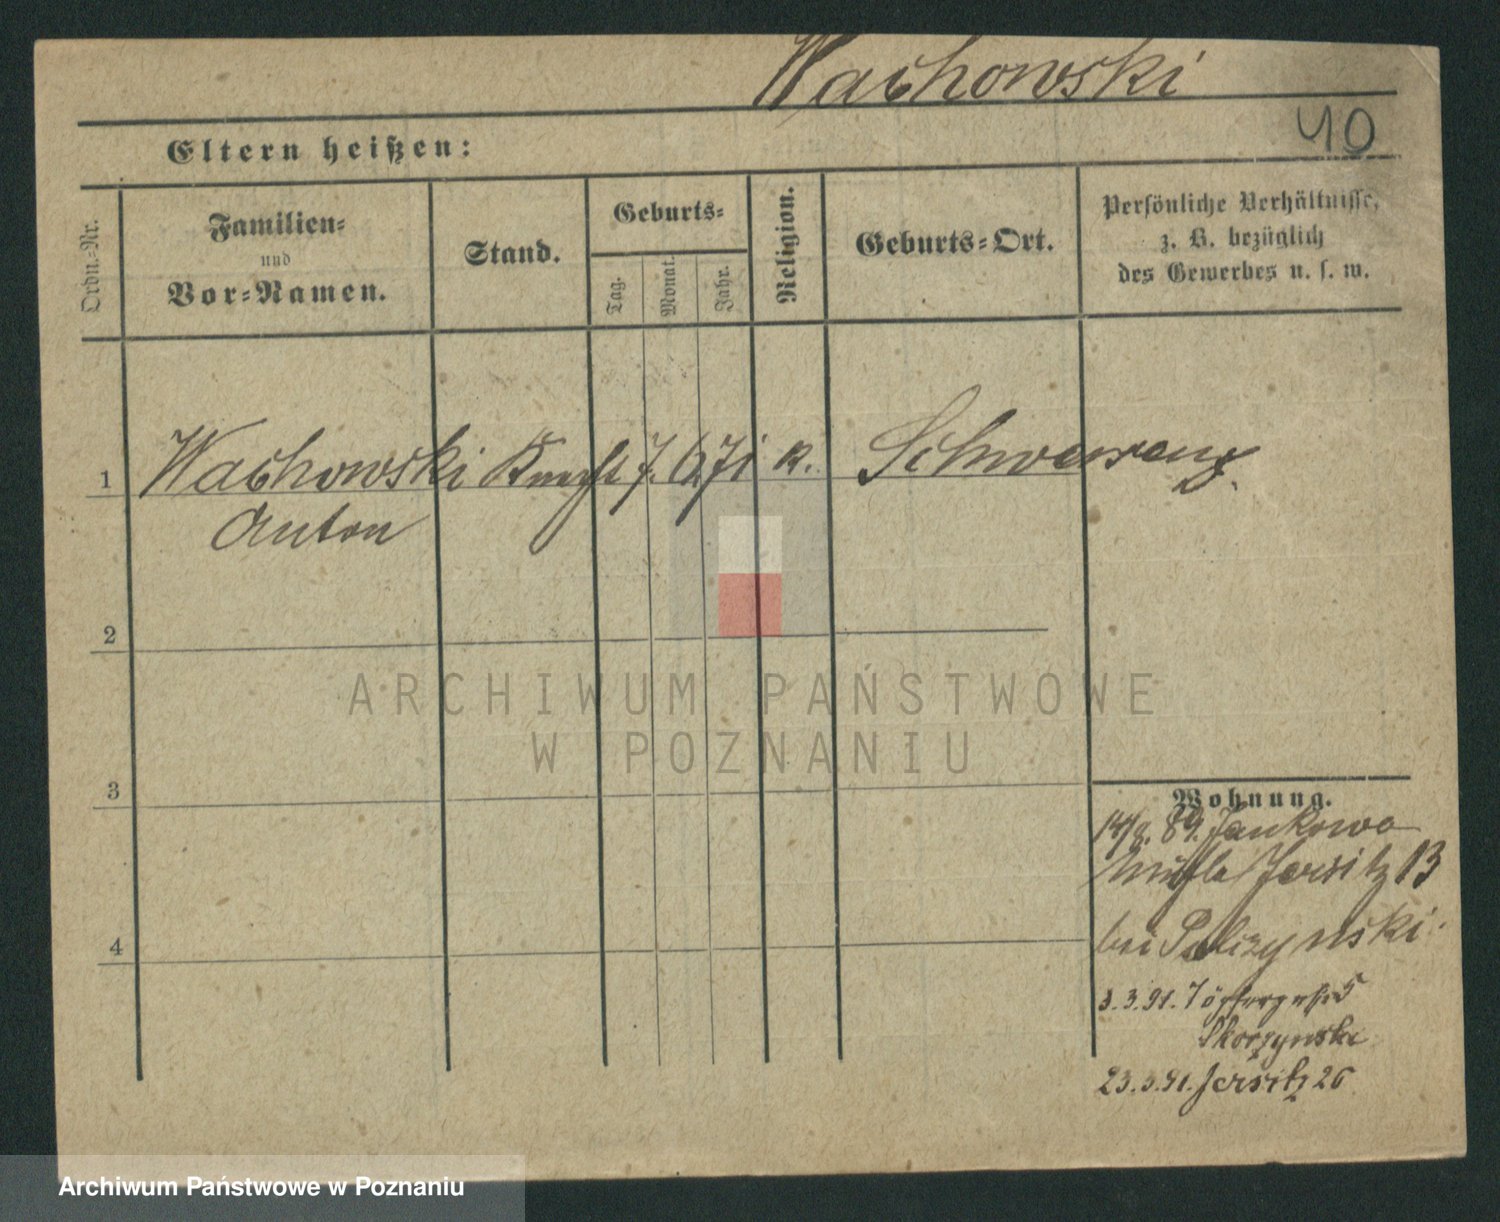 Wachowski
40
Eltern heißen:
Ordn.-Nr.
Familien-
und
Vor-Namen.
Stand.
Geburts-
Tag.
Monat.
Jahr.
Religion.
Geburts-Ort.
Persönliche Verhältnisse,
z. B. bezüglich
des Gewerbes u. s. w.
1 Wachowski Knecht 7. 6. 71 k. Schwersenz.
Anton
2
3
4
Wohnung.
14/8. 89. Jankowo
Jersitz 13
bei Palczynski.
3.3.91. 5
Skorzynski
23.3.91. Jersitz 26
ARCHIWUM PAŃSTWOWE
W POZNANIU
Archiwum Państwowe w Poznaniu